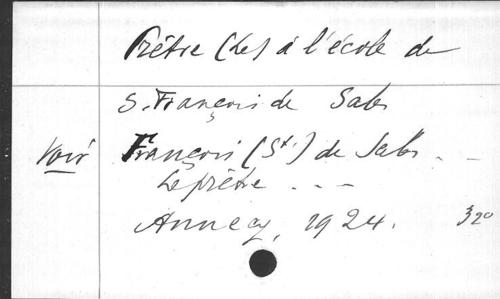 Prêtre (Le) à l'école de
S. François de Sales
Voir François (St.) de Sales . -
Le prêtre . . -
Annecy, 1924. 320